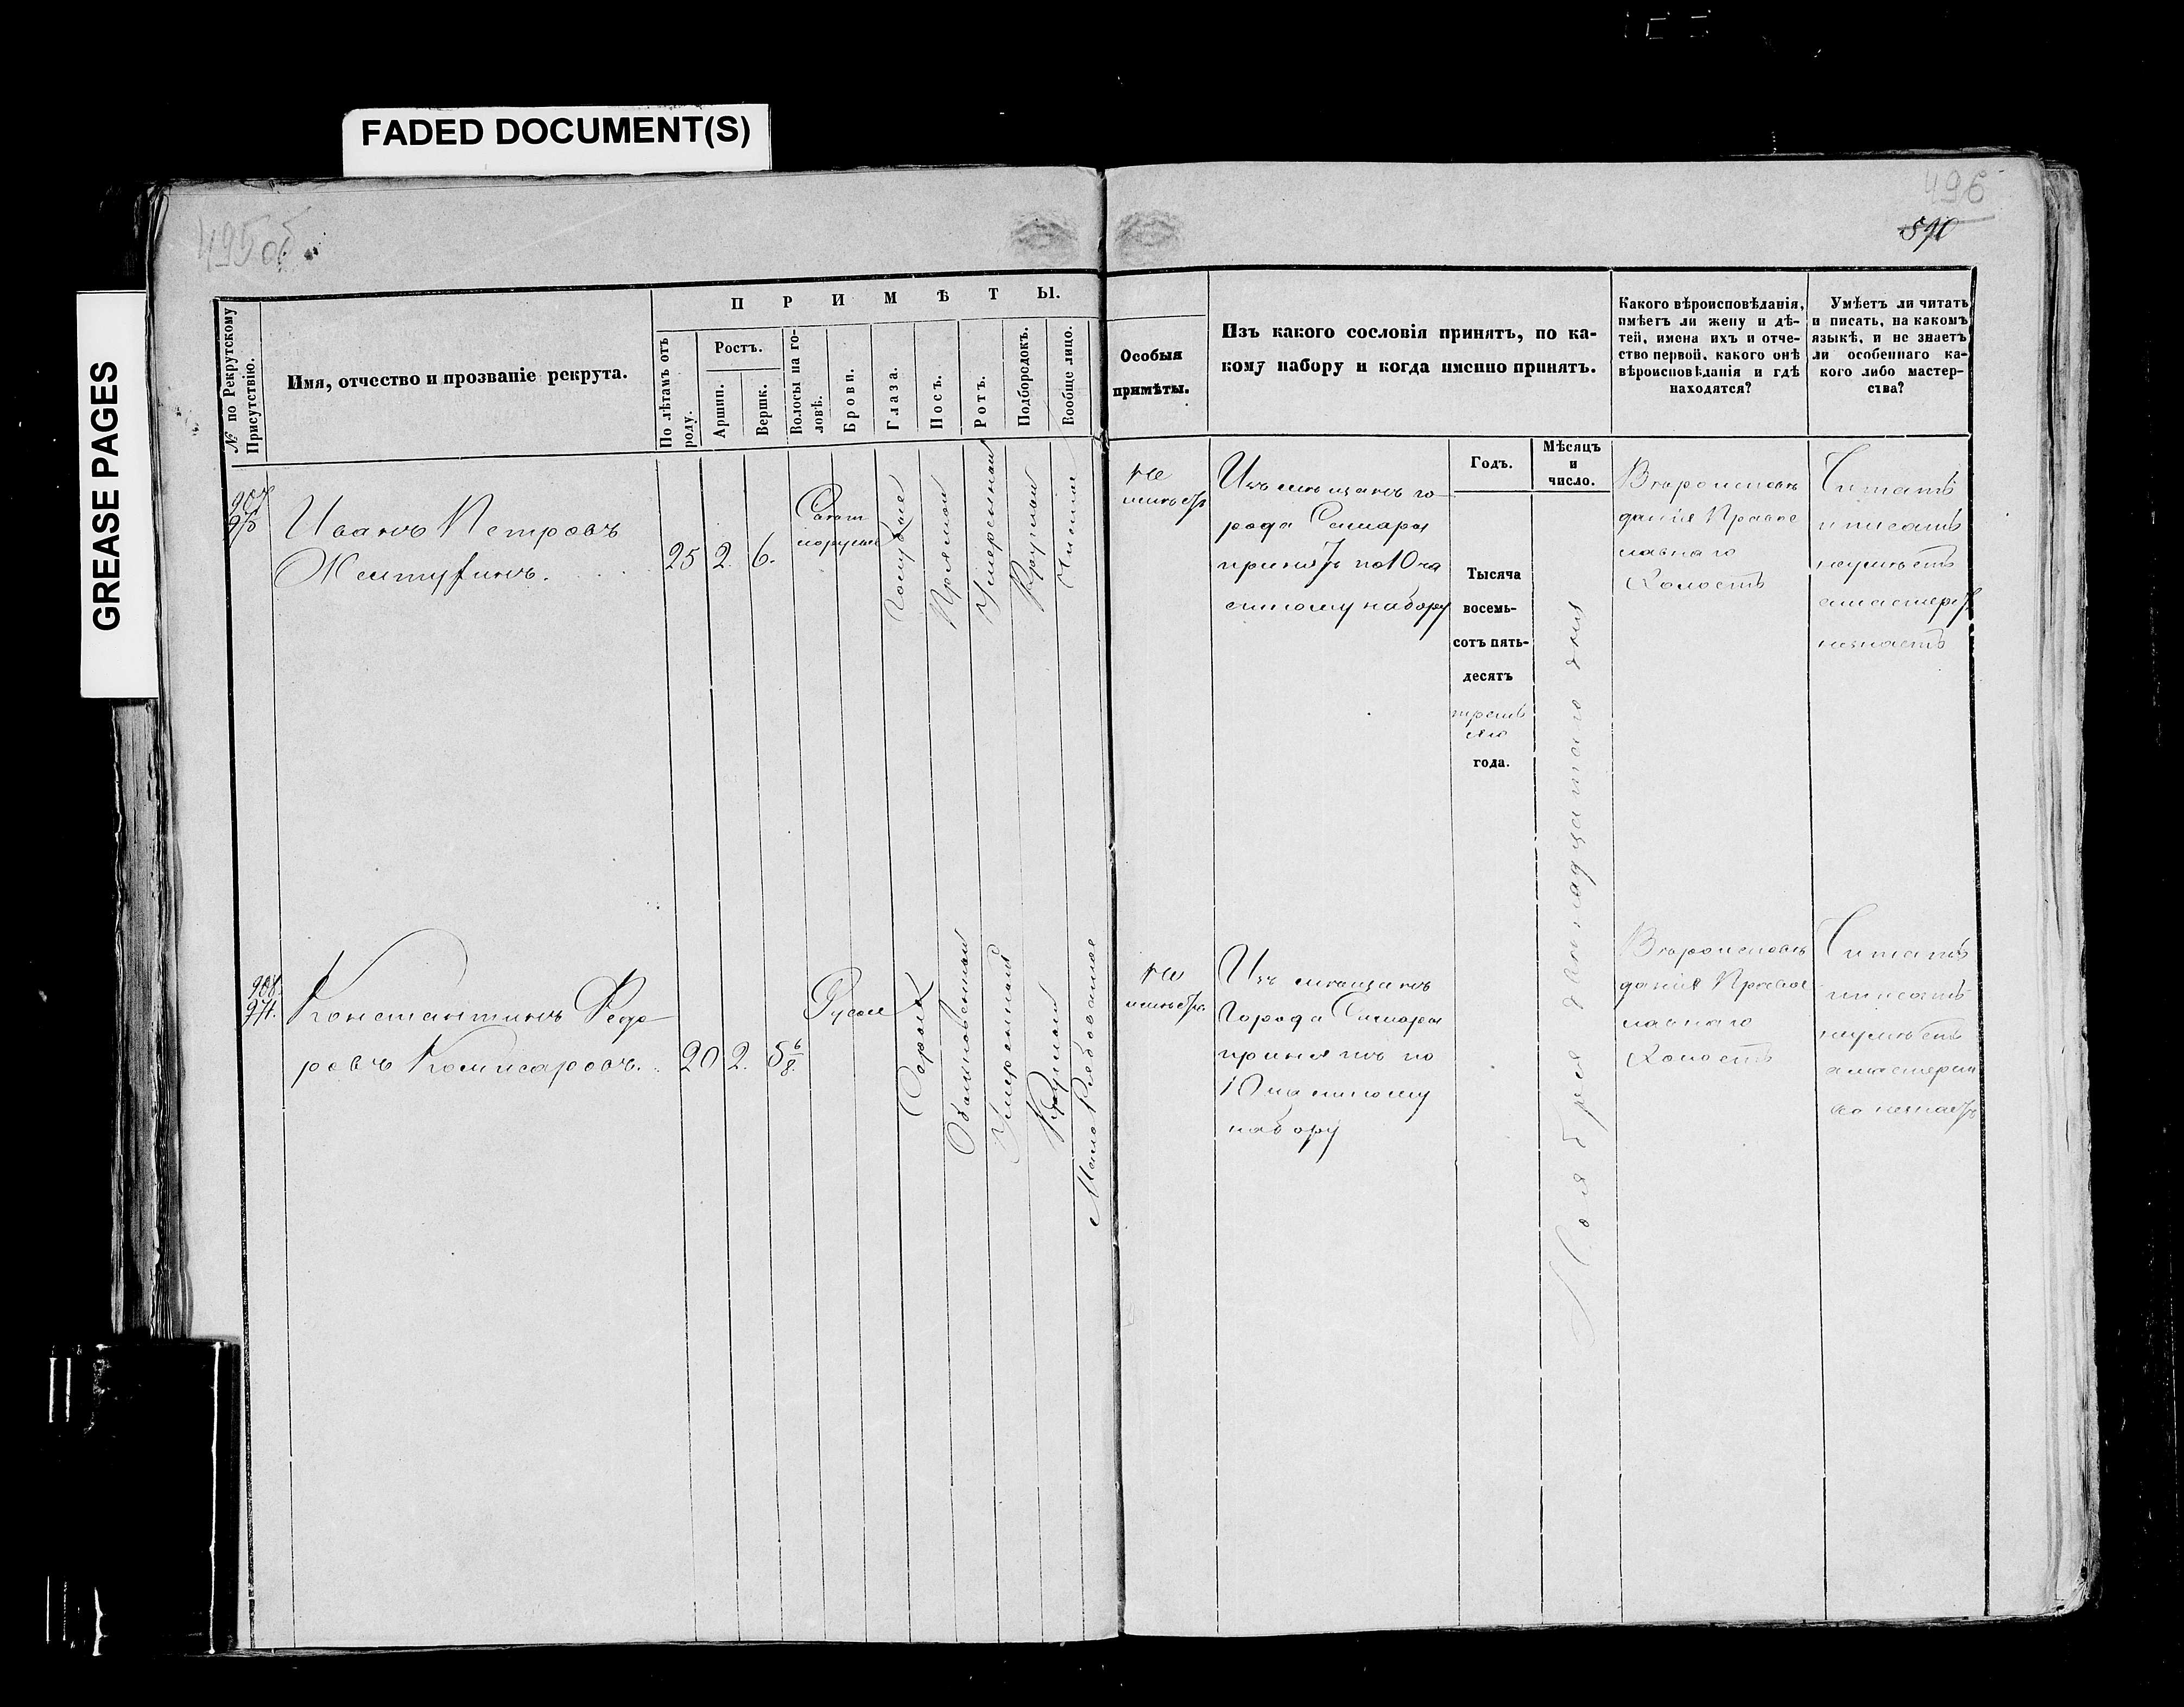 FADED DOCUMENT(S)
GREASE PAGES
495об
496
№ по Рекрутскому Присутствію.
Имя, отчество и прозваніе рекрута.
ПРИМѢТЫ.
По лѣтамъ отъ роду.
Ростъ.
Аршин.
Вершк.
Волосы на головѣ.
Брови.
Глаза.
Носъ.
Ротъ.
Подбородокъ.
Вообще лицо.
Особыя
примѣты.
Изъ какого сословія принятъ, по ка-
кому набору и когда именно принятъ.
Годъ.
Мѣсяцъ
и
число.
Какого вѣроисповѣданія,
имѣетъ ли жену и дѣ-
тей, имена ихъ и отче-
ство первой, какого онѣ
вѣроисповѣданія и гдѣ
находятся?
Умѣетъ ли читать
и писать, на какомъ
языкѣ, и не знаетъ
ли особеннаго ка-
кого либо мастер-
ства?
907
Иванъ Петровъ
25 2. 6.
Голубые
Прямой
Умеренный
Круглой
Чистое
не
имѣетъ
Изъ мѣщанъ го-
рода Самары
принятъ по 10 ча
стному набору
Тысяча
восемь-
сотъ пять-
десятъ
треть
яго
года.
Ноября двенадцатаго дня
Вѣроисповѣ
данія Правос
лавнаго
Холостъ
Читать
и писать
неумѣетъ
а мастерст
незнаетъ
908.
974.
Константинъ Федо-
ровъ Комисаровъ.
20 2. 5 6/8.
Русые
Серые
Обыкновенный
Умеренный
Круглой
Мало Рябоватое
не
имѣетъ
Изъ мѣщанъ
Города Самары
принятъ по
10 частному
набору
Вѣроисповѣ
данія Правос
лавнаго
Холостъ
Читать
и писать
неумѣетъ
а мастерст
ва незнаетъ